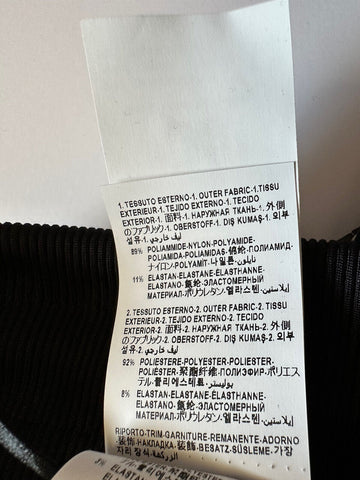 1. TESSUTO ESTERNO-1. OUTER FABRIC-1.TISSU
EXTERIEUR-1. TEJIDO EXTERNO-1. TECIDO
EXTERIOR-1. 面料-1. НАРУЖНАЯ ТКАНЬ-1. 外側
のファブリック-1. OBERSTOFF-1. DIŞ KUMAŞ-1. 외부
섬유-1. ليف خارجي
89% POLIAMMIDE-NYLON-POLYAMIDE-
POLIAMIDA-POLIAMIDAS-锦纶-ПОЛИАМИД-
ナイロン-POLYAMİT-나일론-نايلون
11% ELASTAN-ELASTANE-ÉLASTHANNE-
ELASTANO-氨纶-ЭЛАСТОМЕРНЫЙ
МАТЕРИАЛ-ポリウレタン-엘라스텐-إيلاستين
2. TESSUTO ESTERNO-2. OUTER FABRIC-2. TISSU
EXTERIEUR-2. TEJIDO EXTERNO-2. TECIDO
EXTERIOR-2. 面料-2. НАРУЖНАЯ ТКАНЬ-2. 外側
のファブリック-2. OBERSTOFF-2. DIŞ KUMAŞ-2. 외부
섬유-2. ليف خارجي
92% POLIESTERE-POLYESTER-POLIESTER-
POLIÉSTER-聚酯纤维-ПОЛИЭФИР-ポリエス
テル-폴리에스테르-بوليستر
8% ELASTAN-ELASTANE-ÉLASTHANNE-
ELASTANO-氨纶-ЭЛАСТОМЕРНЫЙ
МАТЕРИАЛ-ポリウレタン-엘라스텐-إيلاستين
RIPORTO-TRIM-GARNITURE-REMANENTE-ADORNO
-装饰-НАКЛАДКА-装飾-BESATZ-SÜSLEME-가장
자리 장식-الزركشة
3% ELASTAN